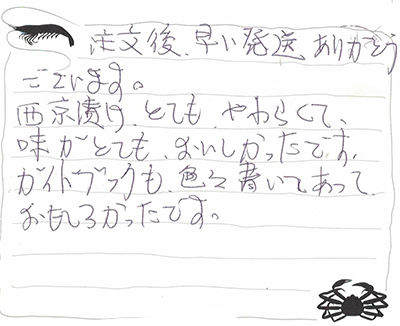 注文後、早い発送、ありがとう
ございます。
西京漬け、とても、やわらくて、
味がとても、おいしかったです。
ガイドブックも、色々書いてあって、
おもしろかったです。